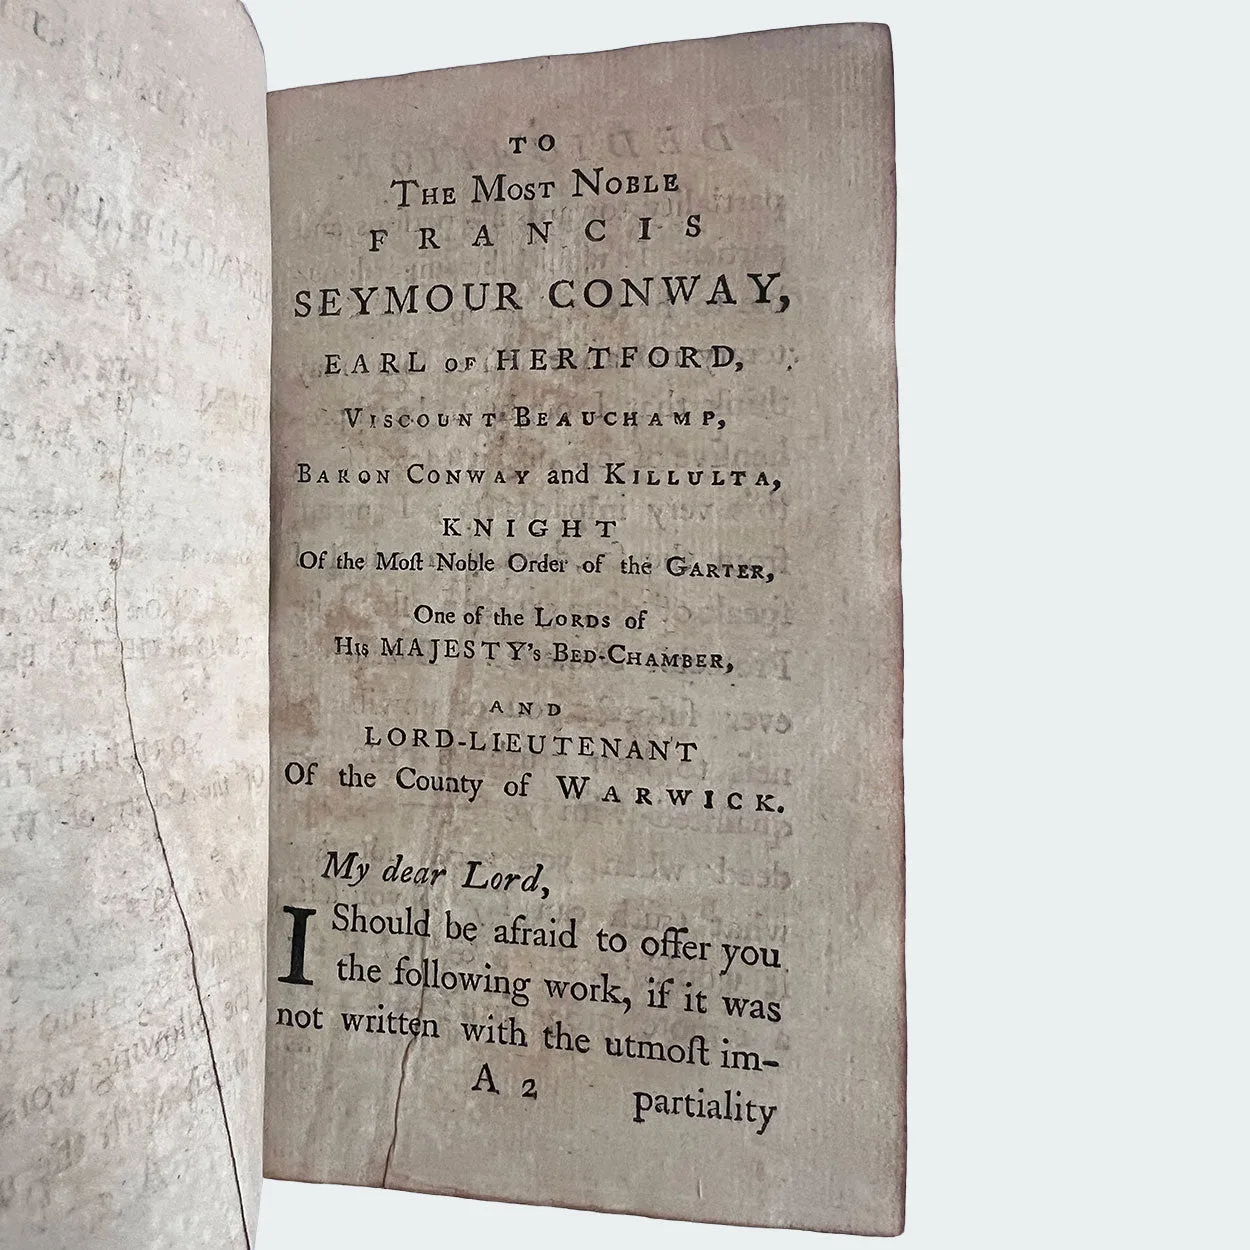 TO
THE MOST NOBLE
FRANCIS
SEYMOUR CONWAY,
EARL OF HERTFORD,
VISCOUNT BEAUCHAMP,
BARON CONWAY and KILLULTA,
KNIGHT
Of the Moſt Noble Order of the GARTER,
One of the LORDS of
His MAJESTY'S BED-CHAMBER,
AND
LORD-LIEUTENANT
Of the County of WARWICK.
My dear Lord,
I Should be afraid to offer you
the following work, if it was
not written with the utmoſt im-
A 2
partiality